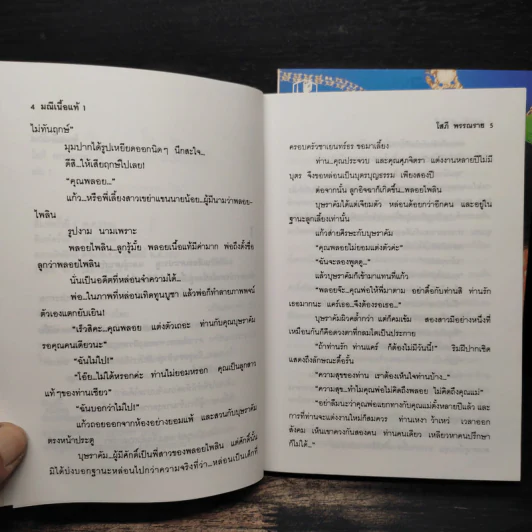 4 มณีเนื้อแท้ 1
ไม่ทันฤกษ์"
มุมปากได้รูปเหยียดออกนิดๆ นึกสะใจ...
ดีสิ...ให้เสียฤกษ์ไปเลย!
"คุณพลอย..."
แก้ว...หรือพี่เลี้ยงสาวเขย่าแขนนายน้อย...ผู้มีนามว่าพลอย-
ไพลิน
รูปงาม นามเพราะ
พลอยไพลิน...ลูกรู้มั้ย พลอยเนื้อแท้มีค่ามาก พ่อถึงตั้งชื่อ
ลูกว่าพลอยไพลิน
นั่นเป็นอดีตที่หล่อนจำความได้...
พ่อ...ในภาพที่หล่อนเทิดทูนบูชา แล้วพ่อก็ทำลายภาพพจน์
ตัวเองแตกยับเยิน!
"เร็วสิคะ...คุณพลอย แต่งตัวเถอะ ท่านกับคุณบุษราคัม
รอคุณคนเดียวนะ"
"ฉันไม่ไป!"
"โอ๊ย...ไม่ได้หรอกค่ะ ท่านไม่ยอมหรอก คุณเป็นลูกสาว
แท้ๆของท่านเชียว"
"ฉันบอกว่าไม่ไป!"
แก้วถอยออกจากห้องอย่างยอมแพ้ และสวนกับบุษราคัม
ตรงหน้าประตู
บุษราคัม...ผู้มีศักดิ์เป็นพี่สาวของพลอยไพลิน แต่ศักดิ์นั้น
มิได้บ่งบอกฐานะหล่อนไปกว่าความจริงที่ว่า...หล่อนเป็นเด็กที่
โสภี พรรณราย 5
ครอบครัวชาเยนทร์ธร ขอมาเลี้ยง
ท่าน...คุณประจวบ และคุณศุภจิตรา แต่งงานหลายปีไม่มี
บุตร จึงขอหล่อนเป็นบุตรบุญธรรม เพียงสองปี
ต่อจากนั้น ลูกอิจฉาก็เกิดขึ้น...พลอยไพลิน
บุษราคัมได้แต่เจียมตัว หล่อนด้อยกว่าอีกคน และอยู่ใน
ฐานะลูกเลี้ยงเท่านั้น
แก้วส่ายศีรษะกับบุษราคัม
"คุณพลอยไม่ยอมแต่งตัวค่ะ"
"ฉันจะลองพูดดู..."
แล้วบุษราคัมก็เข้ามาแทนที่แก้ว
"พลอยจ๊ะ...คุณพ่อให้พี่มาตาม อย่าดื้อกับท่านสิ ท่านรัก
เธอมากนะ แคร์เธอ...จึงต้องรอเธอ..."
บุษราคัมผิวคล้ำกว่า แต่ก็คมเข้ม สองสาวมีอย่างหนึ่งที่
เหมือนกันก็คือดวงตาที่กลมโตเป็นประกาย
"ถ้าท่านรัก ท่านแคร์ ก็ต้องไม่มีวันนี้!" ริมฝีปากเชิด
แสดงถึงลักษณะดื้อรั้น
"ความสุขของท่าน เราต้องเห็นใจท่านบ้าง..."
"ความสุข...ทำไมคุณพ่อไม่คิดถึงพลอย ไม่คิดถึงคุณแม่"
"อย่าลืมนะว่าคุณพ่อแยกทางกับคุณแม่ตั้งหลายปีแล้ว และ
การที่ท่านจะแต่งงานใหม่ก็สมควร ท่านเหงา ว้าเหว่ เวลาออก
สังคม เห็นเขาควงกับสองคน ท่านคนเดียว เหลียวหาคนปรึกษา
ก็ไม่ได้..."